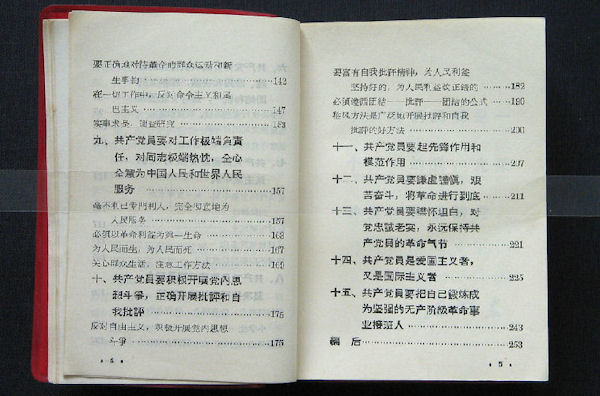 要正确地对待革命的群众运动和新
生事物 142
在一切工作中，反对命令主义和尾
巴主义 147
实事求是，调查研究 153
九、共产党員要对工作极端負責
任，对同志极端热忱，全心
全意为中国人民和世界人民
服务 157
毫不利己专門利人，完全彻底地为
人民服务 157
必須以革命利益为第一生命 163
为人民而生，为人民而死 167
关心群众生活，注意工作方法 169
十、共产党員要积极开展党內思
想斗爭，正确开展批評和自
我批評 175
反对自由主义，积极开展党内思想
斗爭 175
· 4 ·
要富有自我批評精神，为人民利益
坚持好的，为人民利益改正錯的 182
必須遵循团結——批評——团結的公式 190
和风方法是广泛地开展批評和自我
批評的好方法 200
十一、共产党員要起先鋒作用和
模范作用 207
十二、共产党員要謙虛謹愼，艰
苦奋斗，将革命进行到底 211
十三、共产党員要襟怀坦白，对
党忠誠老实，永远保持共
产党員的革命气节 221
十四、共产党員是爱国主义者，
又是国际主义者 225
十五、共产党員要把自己鍛炼成
为坚强的无产阶級革命事
业接班人 243
編 后 253
· 5 ·